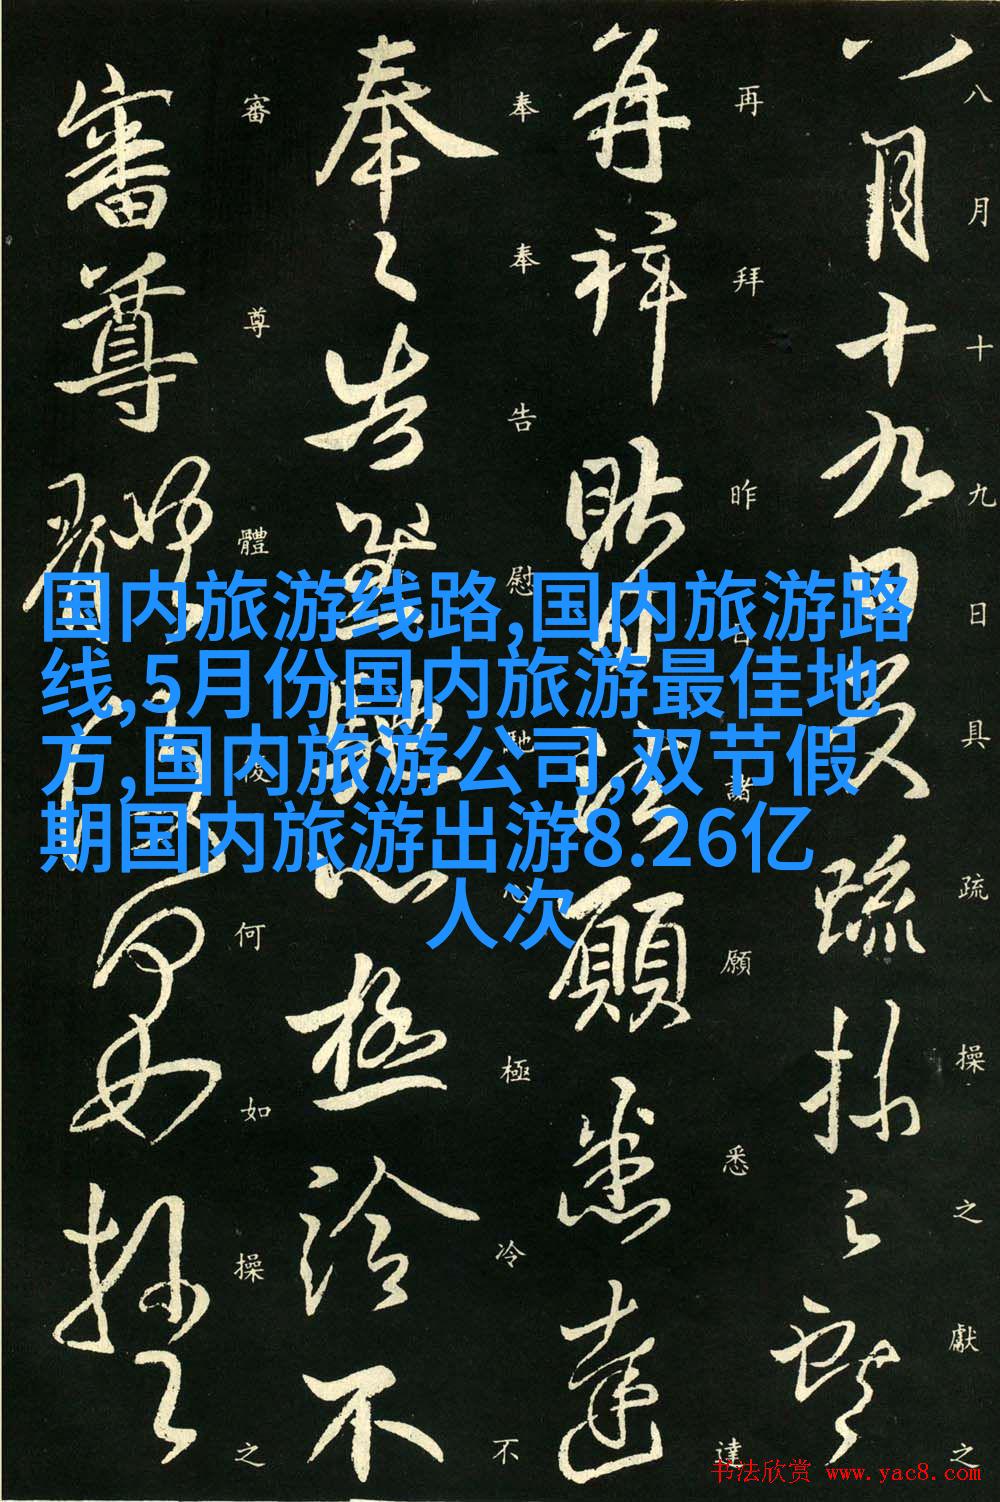 国内旅游线路,国内旅游路
线,5月份国内旅游最佳地
方,国内旅游公司,双节假
期国内旅游出游8.26亿
人次
八月十九日具疏操之獻之
再拜昨日諸願悉達
奉奉告慰馳心極冷不
審尊體復何如操之
书法欣赏 www.yac8.com